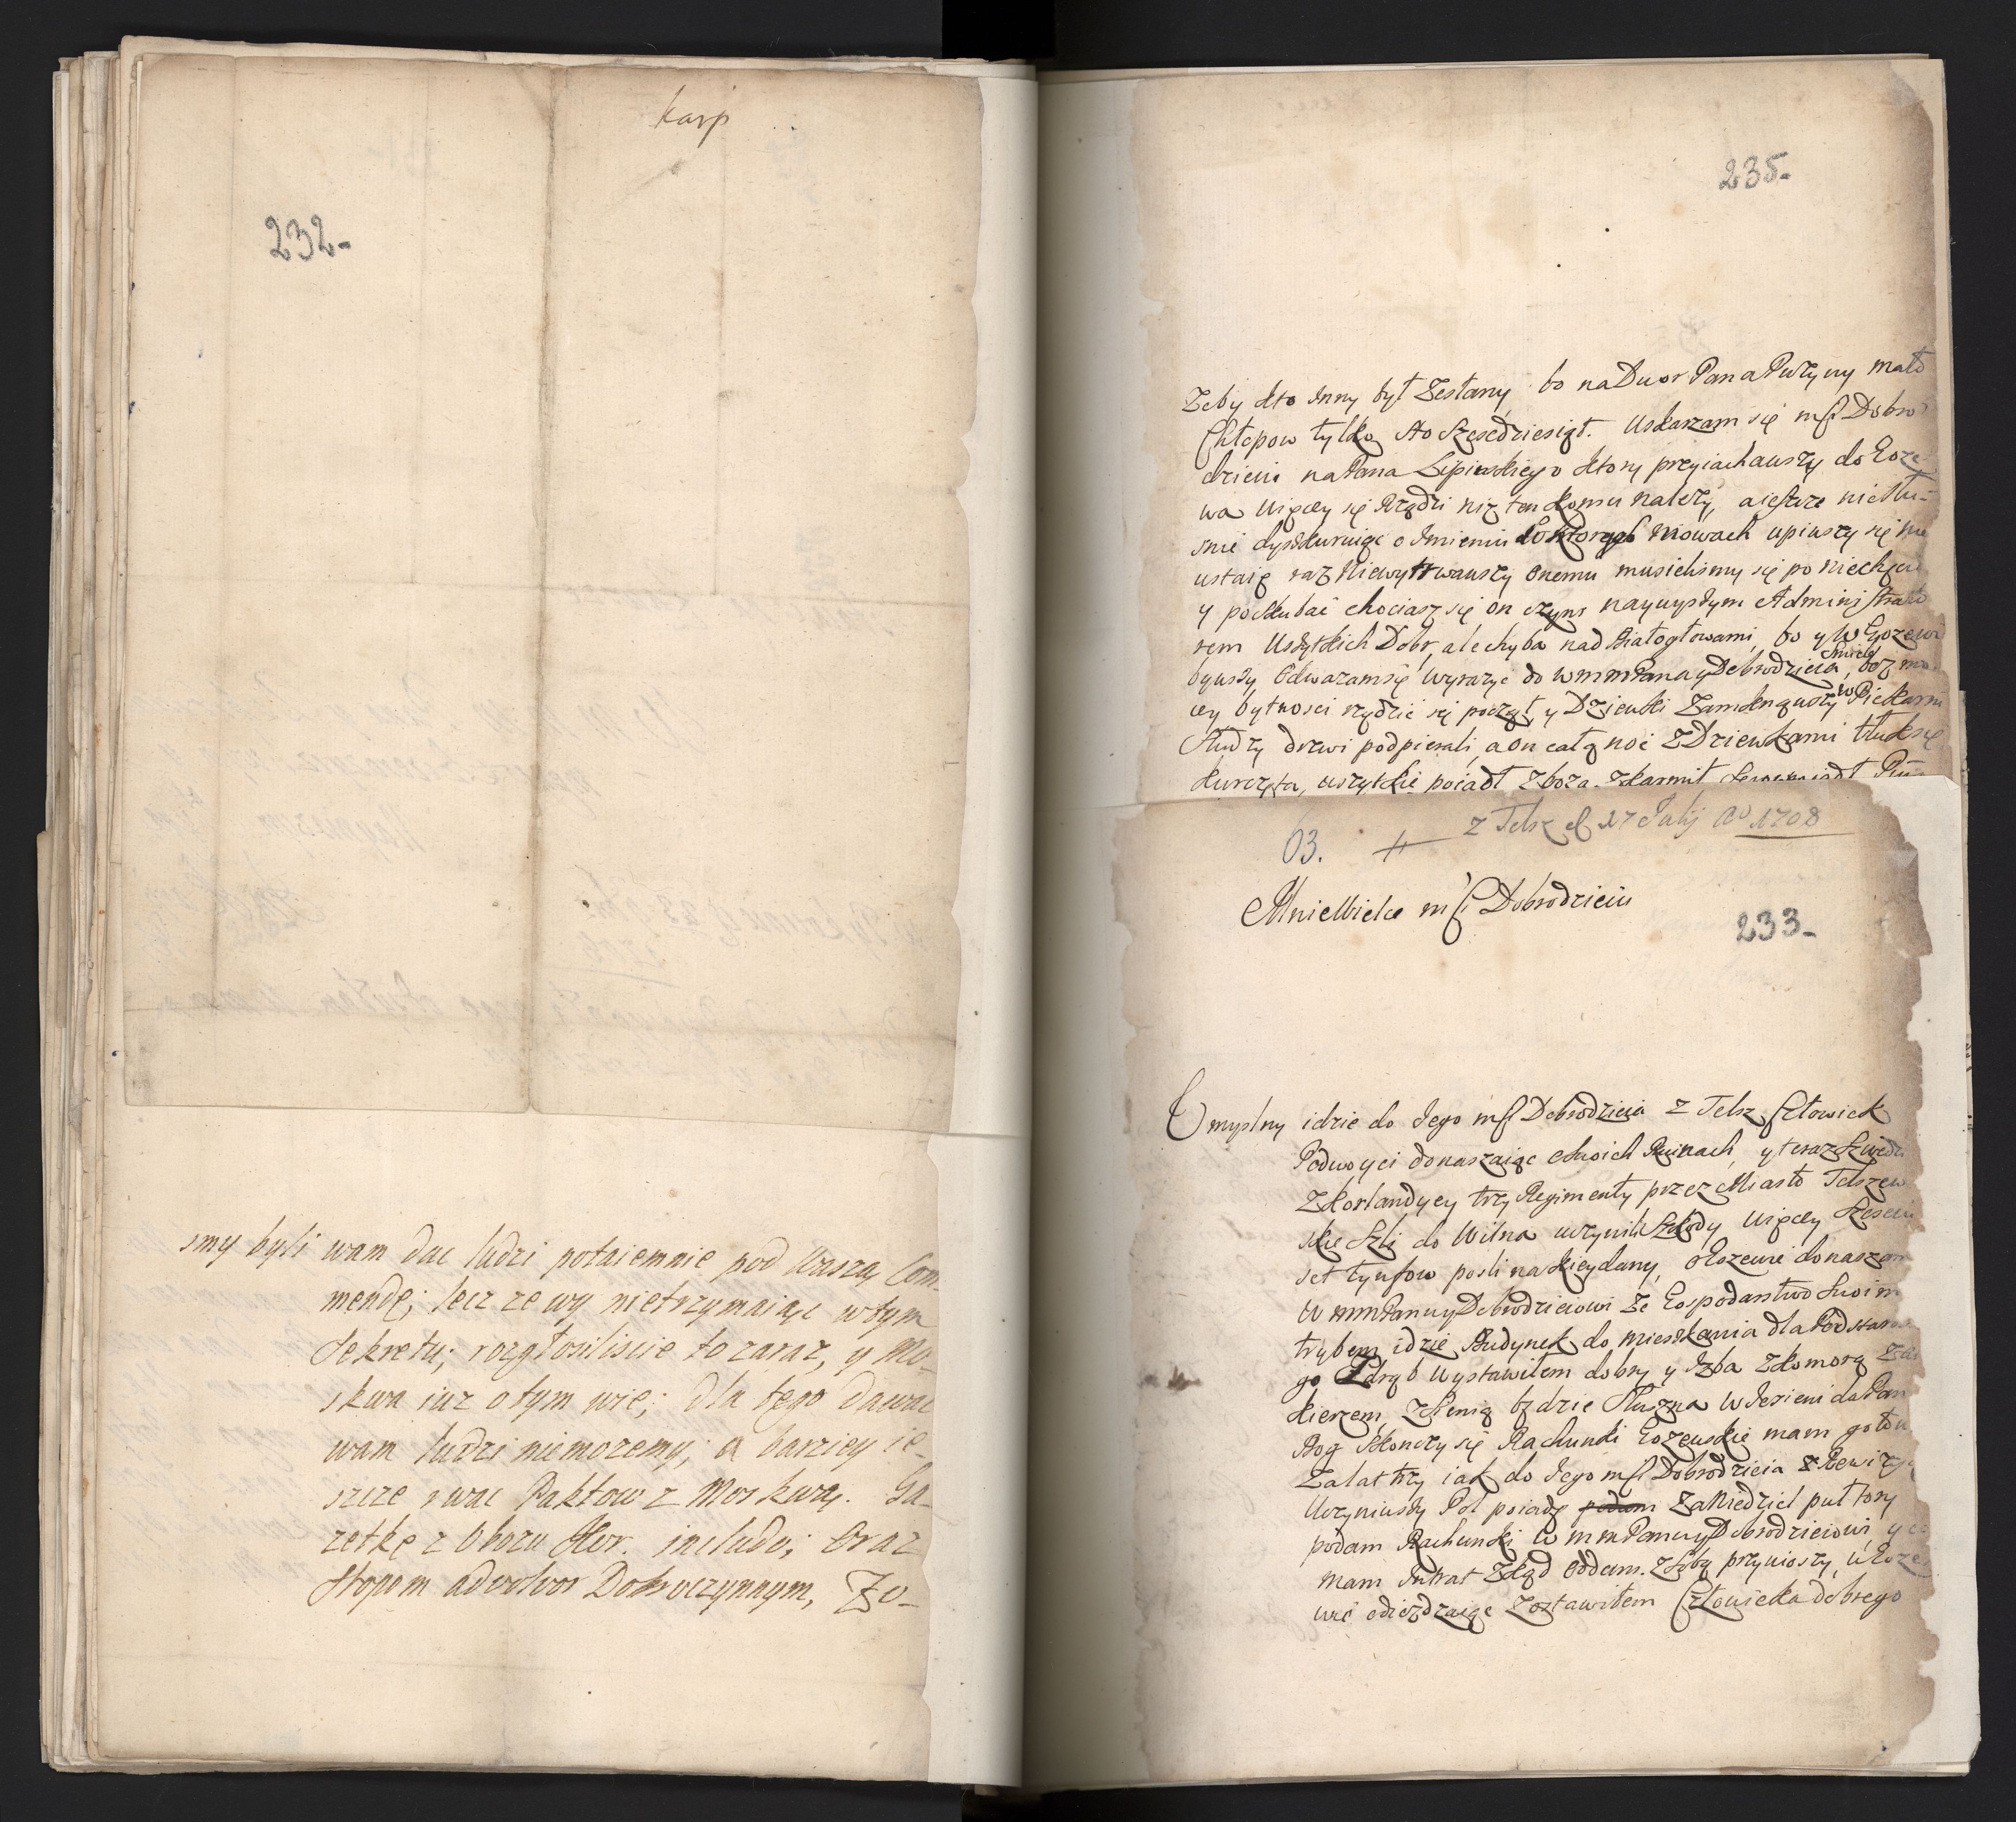 karp
232-
smy byli wam dac ludzi potaiemnie pod Waszą Com-
mendę; lecz ze wy nietrzymaiąc wtym
Sekretu; rozgłosiliscie to zaraz, y Mo-
skwa iuz o tym wie; dla tego dawac
wam ludzi niemozemy; a barziey ie-
szcze rwac Paktow z Moskwą. Ga-
zetkę z Obozu Szw. includo; Oraz
Stopom advolvor Dobroczynnym, Zo-
235-
Zeby kto Inny był Zesłany, bo na Dwor Pana Puzyny mało
Chłopow tylko sto szescdziesiąt. Uskarzam się mſci Dobro
dzieiu na Pana Lipinskiego ktory przyiachawszy do Łoze
wa więcey się Rządzi niz ten komu nalezy, a ieszcze niesłu-
snie dyszkuruiąc o Imieniu mowach upiwszy się nie
ustaię raz Niewytrwawszy onemu musielismy się poniechęcic
y poskubać chociasz się on czyni naywyszym Administrato
rem Wszytkich Dobr, ale chyba nad Białogłowami, bo y w Łozewie
bywszy Odwazamsię wyrazyc do WmmPana y Dobrodzieia Smiele, bo z mo
iey bytnosci rządzic się począł, y Dziewki Zamknąwszy w Piekarni
Słudzy drzwi podpierali, a on całą noc z Dziewkami tłukł się
kurczęta, wszytkie poiadł Zboza Zkarmił
z Telsz d 27 Julij Ao 1708
63.
Mnie Wielce mſci Dobrodzieiu
233-
Umyslny idzie do Jego mſci Dobrodzieia z Telsz Człowiek
Podwoyci donaszaiąc o swoich Ruinach, y teraz Szwedzi
z Korlandyey trzy Regimenty przez Miasto Telszew
skie szli do Wilna uczynili Szkody więcey szesciu
set tynfow posli na Kieydany, o Łozewie donaszam
WmmPanu y Dobrodzieiowi Ze Gospodarstwo swoim
trybem idzie Budynek do mieszkania dla Podstaros
go Zdrąb wystawiłem dobry y Izba z komorą z al
kierzem, z Sienią będzie słuszna w Jesieni da Pan
Bog Skonczy się Rachunki Łozewskie mam gotow
Zalat trzy iak do Jego mſci Dobrodzieia z Rewizyą
Uczyniwszy Pol poiadę podam Zaniedziel puł tory
podam Rachunki WmmPanu y Dobrodzieiowi, y co
mam Intrat Ztąd oddam. Zsobą przyniozszy, w Łoze
wie odiezdzaiąc Zostawiłem Człowieka dobrego